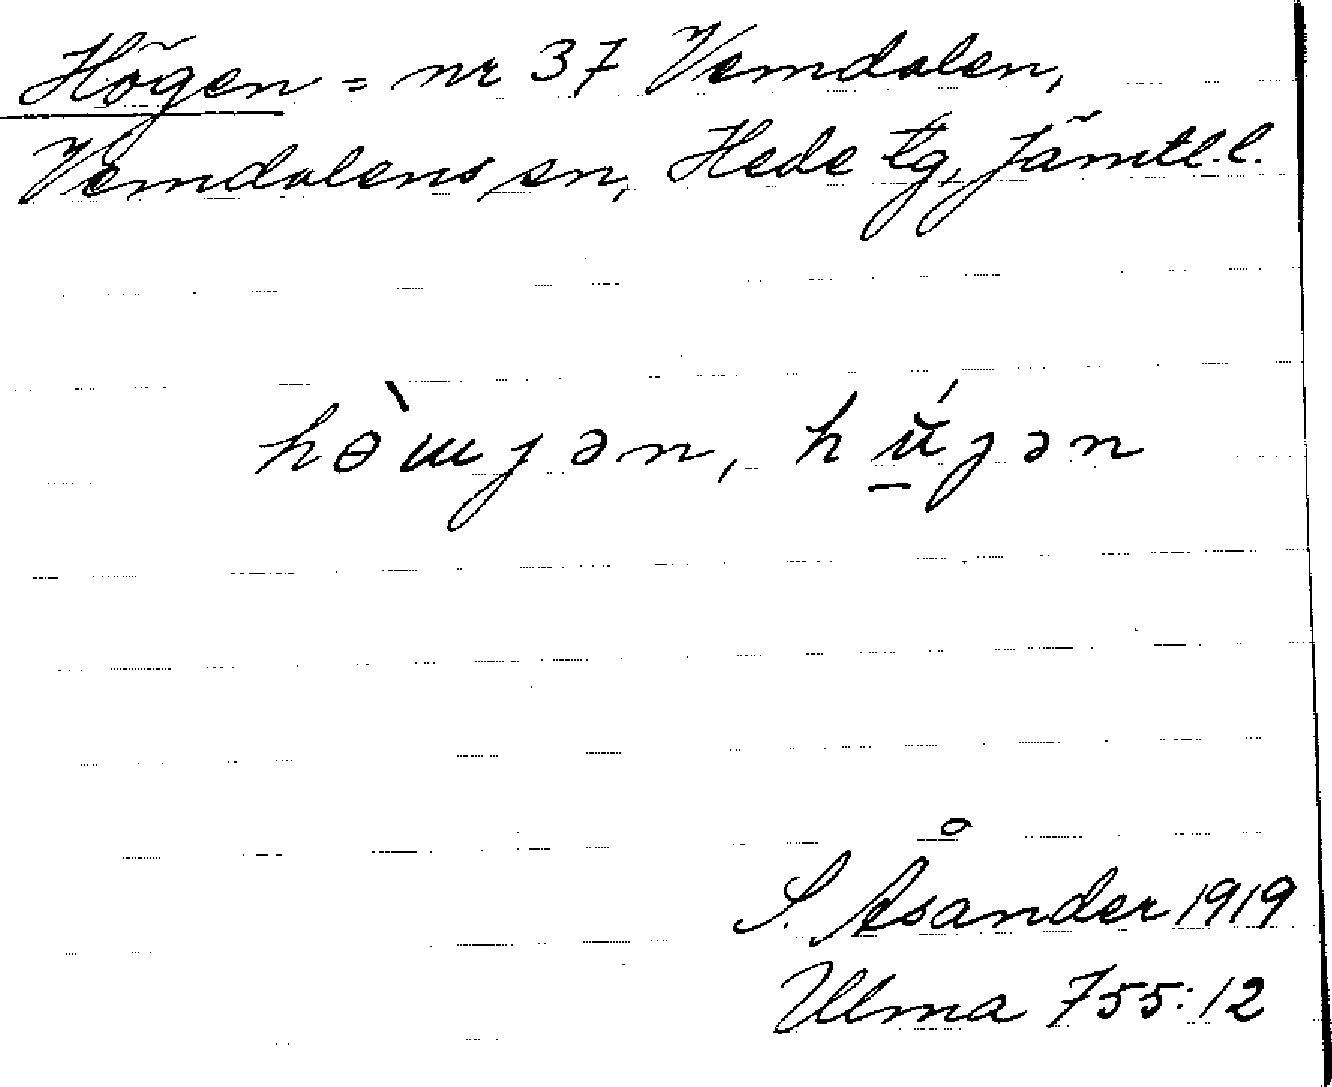 Högen = nr 37 Vemdalen,
Vemdalens sn, Hede tg, Jämtl. l.
hɵ̀ɯȷən, hṵ́ȷən
S. Åsander 1919
Ulma 755:12